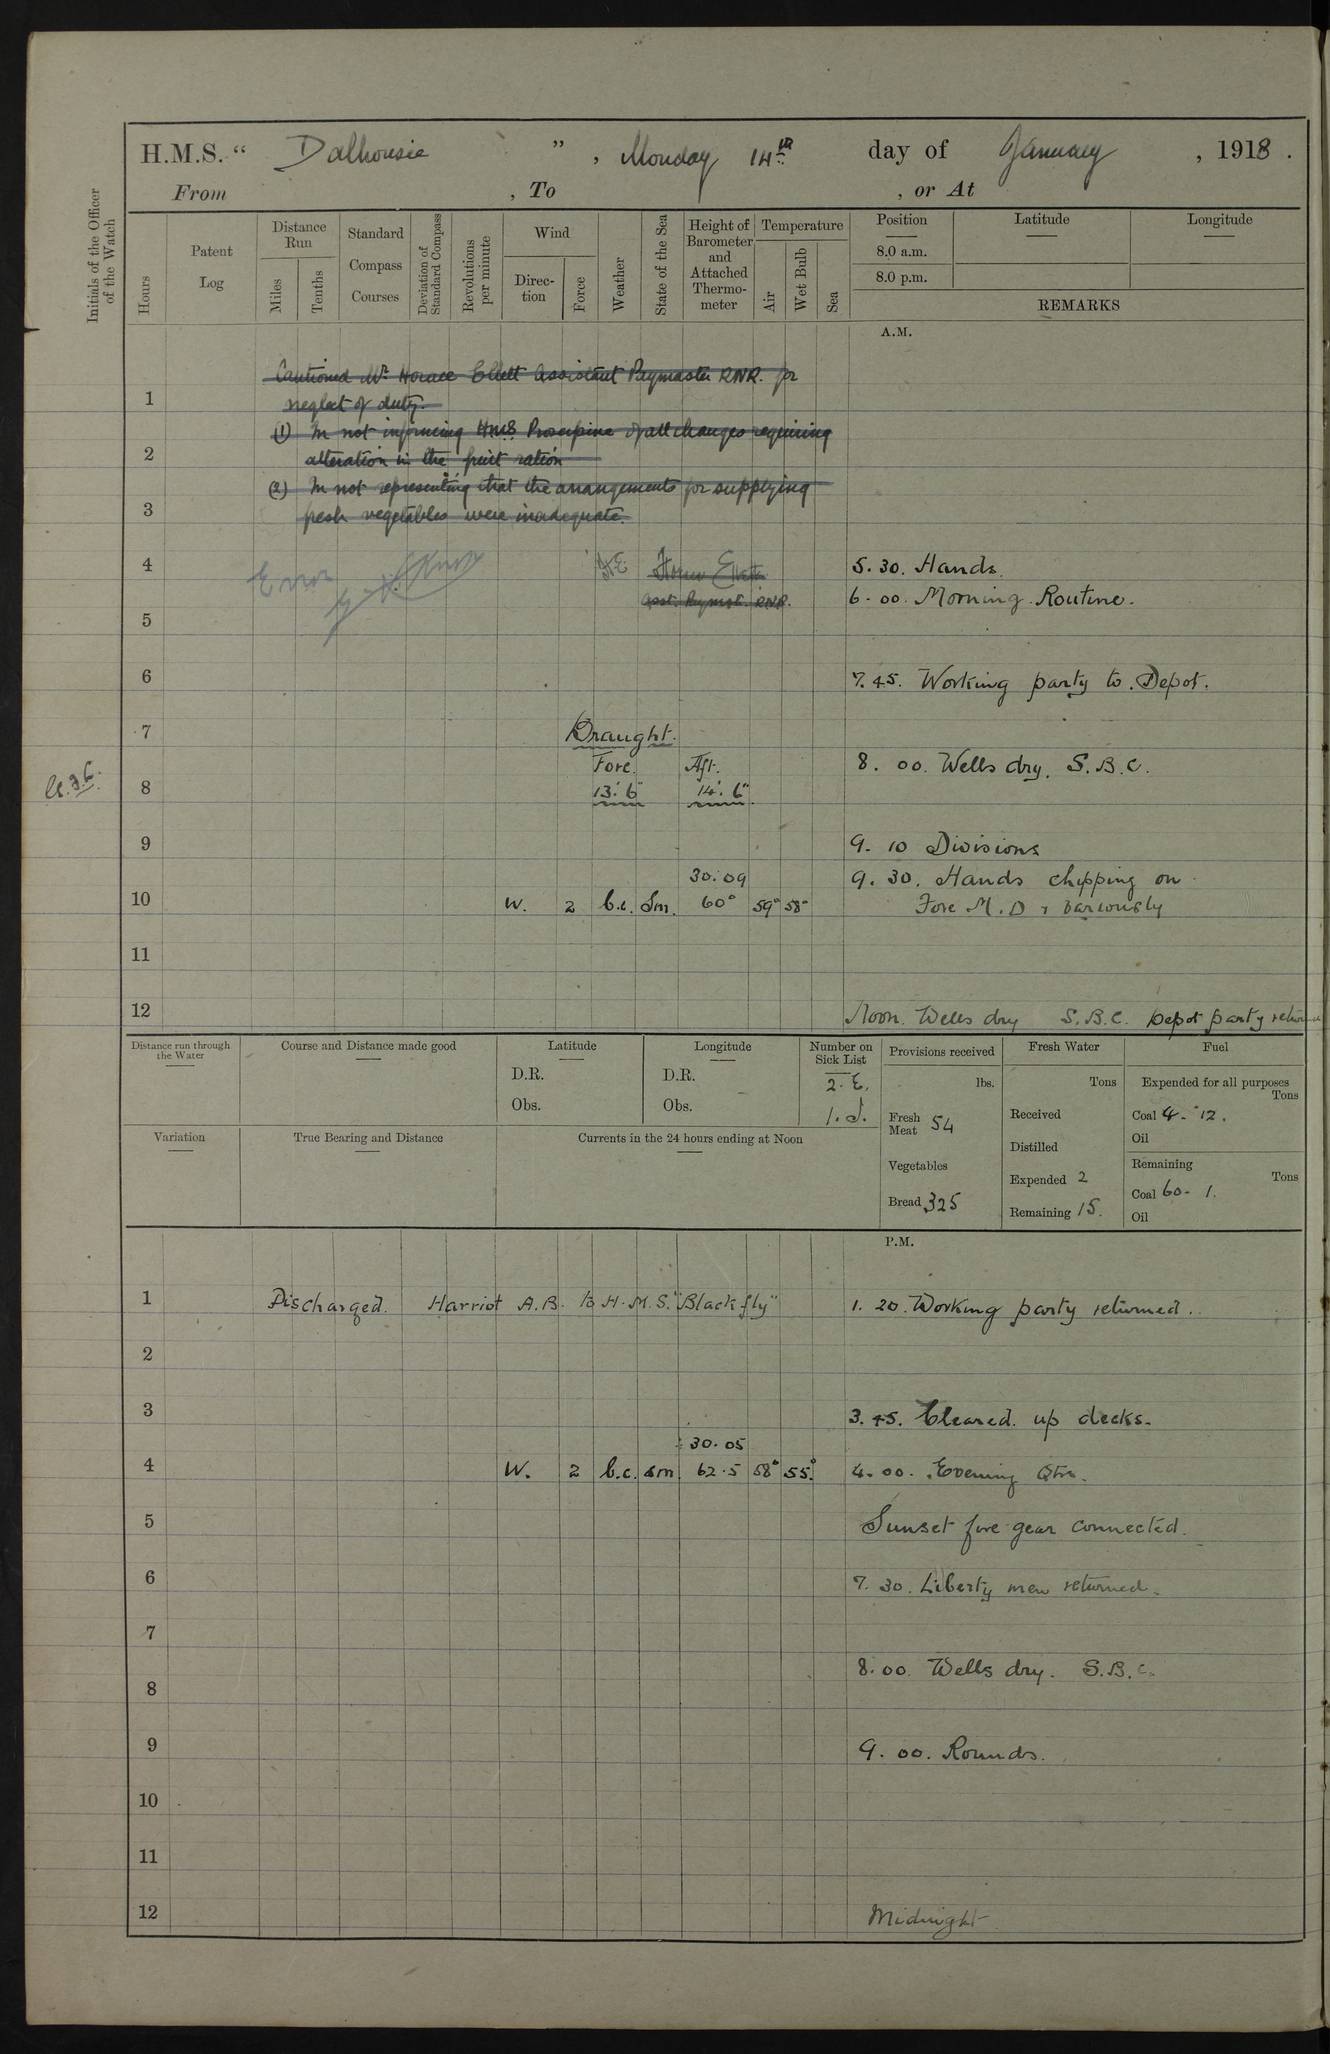 H.M.S. “ Dalhousie ”, Monday 14th day of January, 1918.
From , To , or At
Initials of the Officer of the Watch
Hours
Patent Log
Distance Run
Miles
Tenths
Standard Compass Courses
Deviation of Standard Compass
Revolutions per minute
Wind
Direc-tion
Force
Weather
State of the Sea
Height of Barometer and Attached Thermo-meter
Temperature
Air
Wet Bulb
Sea
Position
8.0 a.m.
8.0 p.m.
Latitude
Longitude
REMARKS
A.M.
Cautioned Mr Horace Ellett Assistant Paymaster RNR. for
1
neglect of duty.
(1) In not informing HMS Proserpine of all changes requiring
2
alteration in the fruit ration
(2) In not representing that the arrangements for supplying
3
fresh vegetables were inadequate.
4 Error HE Horace Ellett 5.30. Hands.
Asst. Paymst. RNR. 6.00. Morning Routine.
5
6 7.45. Working party to Depot.
7 Draught.
Fore. Aft. 8.00. Wells dry. S.B.C.
8 13'.6" 14'.6"
9 9.10 Divisions
30.09 9.30. Hands chipping on
10 W. 2 b.c. Sm. 60° 59° 58° Fore M.D & variously
11
12 Noon. Wells dry S.B.C. Depot party returned
Distance run through the Water
Course and Distance made good
Latitude
D.R.
Obs.
Longitude
D.R.
Obs.
Number on Sick List
2. E.
Provisions received
lbs.
Fresh Meat 54
Vegetables
Bread 325
Fresh Water
Tons
Received
Distilled
Expended 2
Remaining 15.
Fuel
Expended for all purposes
Tons
Coal 4 - 12.
Oil
Remaining
Tons
Coal 60 - 1.
Oil
Variation
True Bearing and Distance
Currents in the 24 hours ending at Noon
P.M.
1 Discharged. Harriot A.B. to H.M.S. "Blackfly" 1.20. Working party returned.
2
3 3.45. Cleared up decks.
30.05
4 W. 2 b.c. sm. 62.5 58° 55° 4.00. Evening Qtrs.
5 Sunset fire gear connected.
6 7.30. Liberty men returned.
7
8.00. Wells dry. S.B.C.
8
9 9.00. Rounds.
10
11
12 Midnight